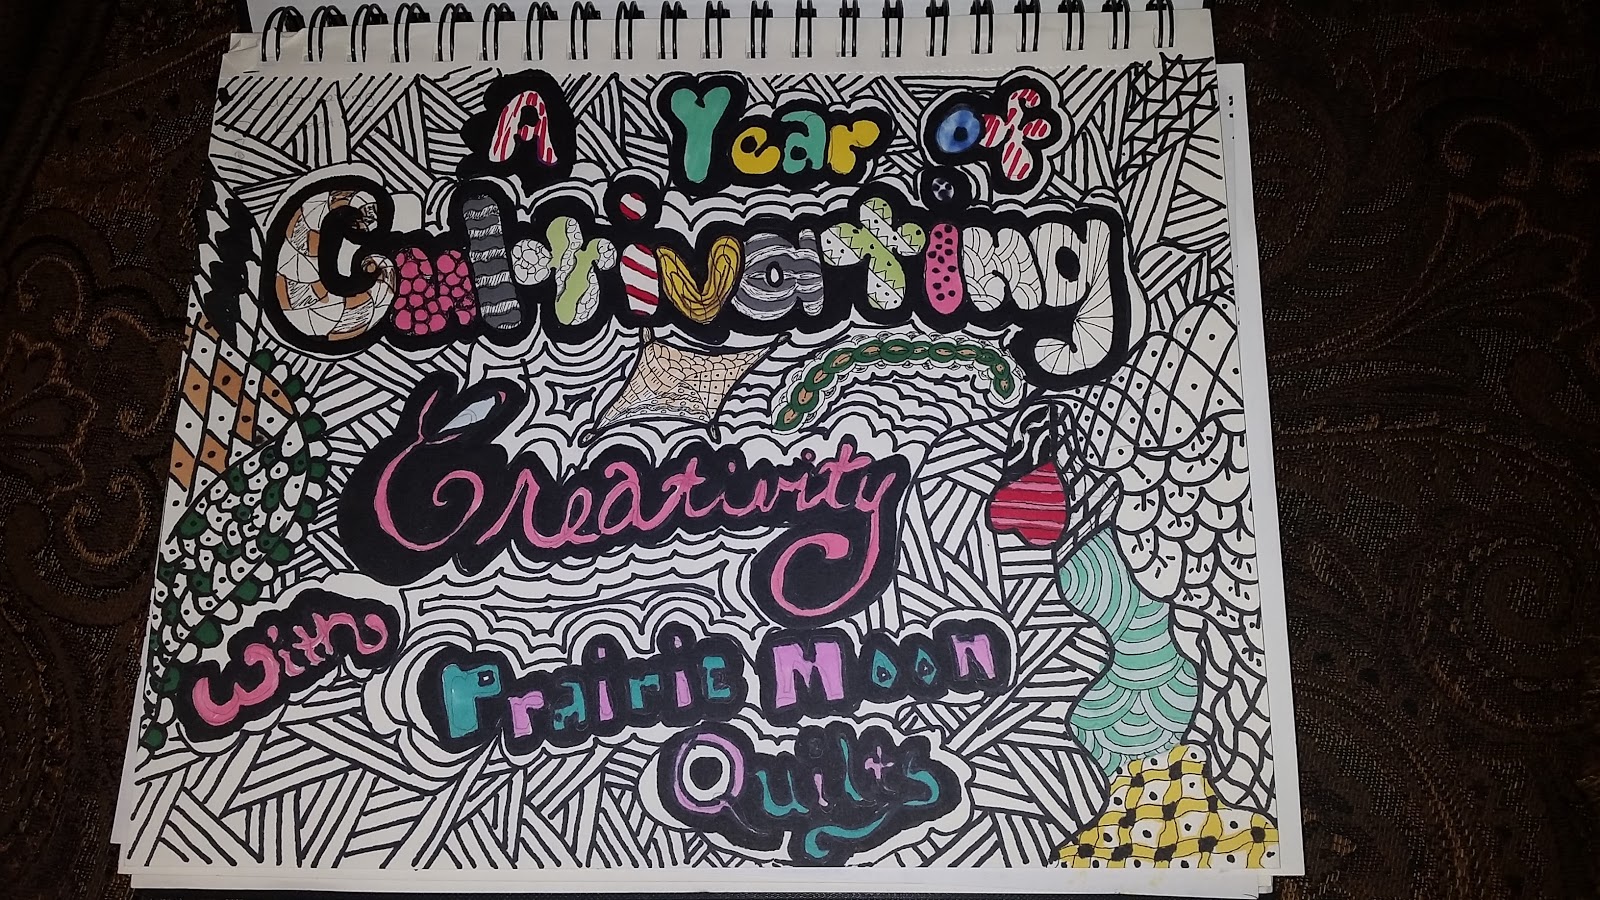 A Year of
Cultivating
Creativity
with
Prairie Moon
Quilts